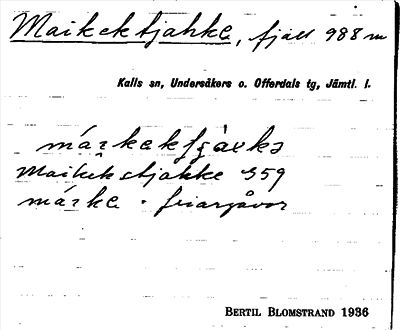 Maikektjahke, fjäll 988 m
Kalls sn, Undersåkers o. Offerdals tg, Jämtl. l.
márkekfjàɛkə
Maikêkstjahke S59
márke · friargåvor
BERTIL BLOMSTRAND 1936